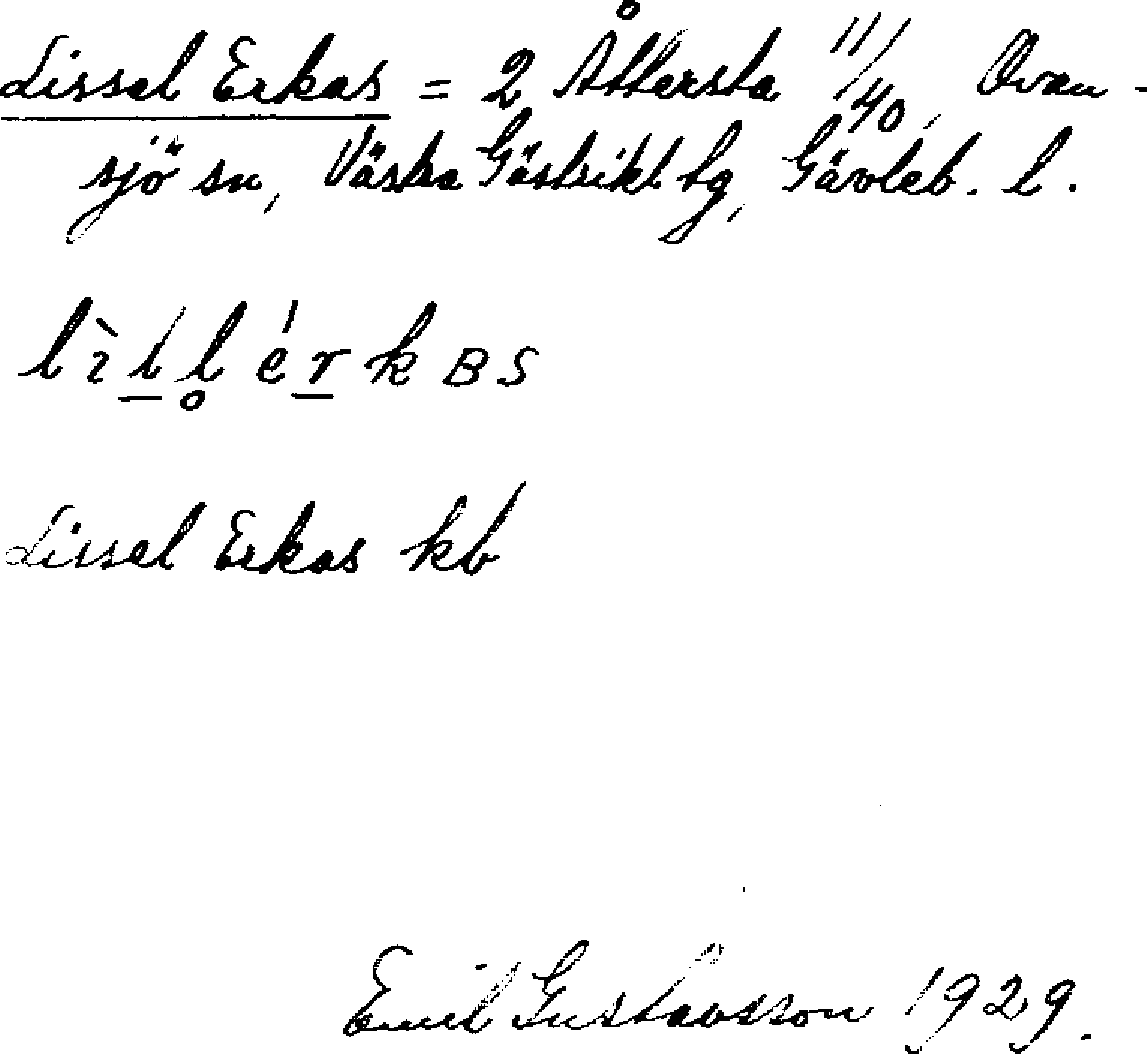 Lissel Erkas = 2 Åttersta 11/40, Ovan-
sjö sn, Västra Gästrikl tg, Gävleb. l.
lìt̠l̥ ér̠kʙs
Lissel Erkas kb
Emil Gustavsson 1929.